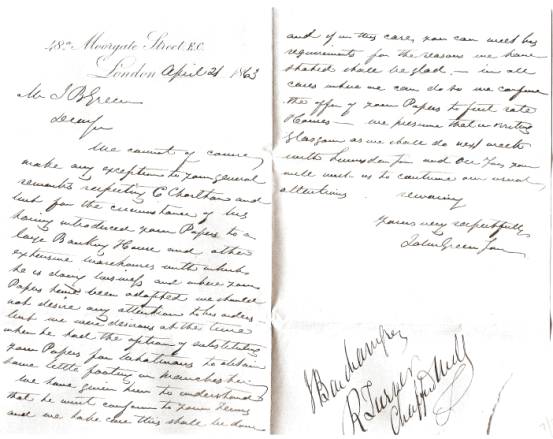 48a Moorgate Street E.C.
London April 21 1863
Mr J B Green
Dear Sir
We cannot of course
make any exception to your general
remarks respecting C Chortham and
but for the circumstance of his
having introduced your Papers to a
large Banking House and other
extensive warehouses with whom
he is doing business and where your
Papers have been adopted we should
not desire any attention to his orders -
but we were desirous at the time
when he had the option of substituting
your Papers for Whatmans to obtain
some little footing in
We have given him to understand
that he must conform to your Terms
and we take care this shall be done
and if in this case you can meet his
requirements for the reasons we have
stated shall be glad — in all
cases when we can do so we confine
the offer of your Papers to first rate
Houses — we presume that in writing
Glasgow as we shall do next week
with and you
will wish us to continue our usual
attentions. remaining
Yours very respectfully
John Green Son
R Turner
Chafford Mills